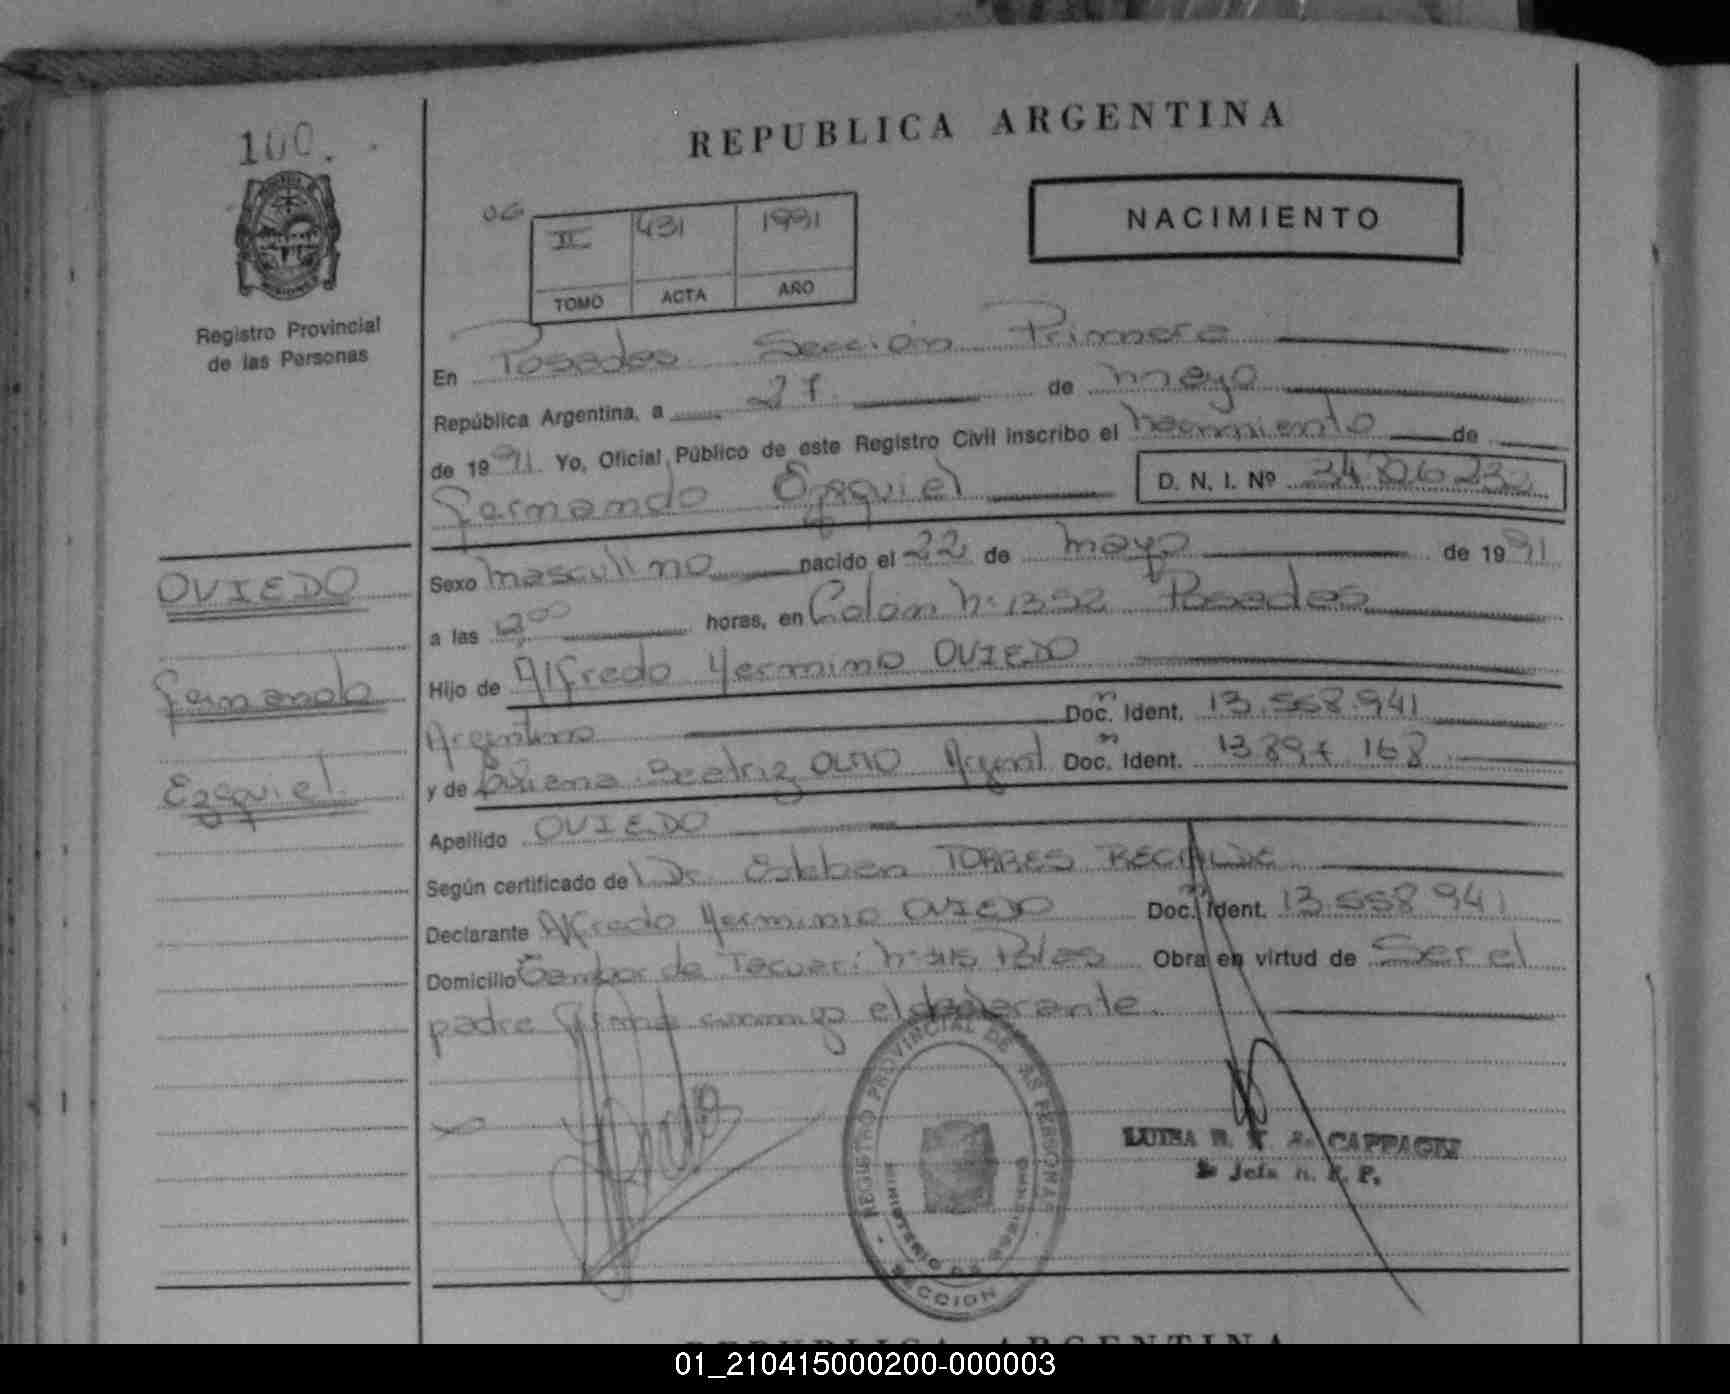 100.
REPUBLICA ARGENTINA
NACIMIENTO
OG
II 431 1991
TOMO ACTA AÑO
Registro Provincial
de las Personas
En Posadas Sección Primera
República Argentina, a 27 de mayo
de 1991 Yo, Oficial Público de este Registro Civil inscribo el nacimiento de
Fernando Ezequiel D. N. I. Nº
OVIEDO
Fernando
Ezequiel
Sexo masculino nacido el 22 de mayo de 1991
a las horas, en Colon Nº 1392 Posadas
Hijo de Alfredo Herminio OVIEDO
Argentino Doc. Ident. 13.558.941
y de Beatriz Argent Doc. Ident. 13 897 168
Apellido OVIEDO
Según certificado de Dr. Esteban TORRES RECALDE
Declarante Alfredo Herminio OVIEDO Doc. Ident. 13.558.941
Domicilio Tambor de Tacuari Nº Pdas Obra en virtud de Ser el
padre Firma conmigo el declarante.
REGISTRO PROVINCIAL DE LAS PERSONAS
MINISTERIO DE GOBIERNO
SECCION
LUISA
Jefa
REPUBLICA ARGENTINA
01_210415000200-000003